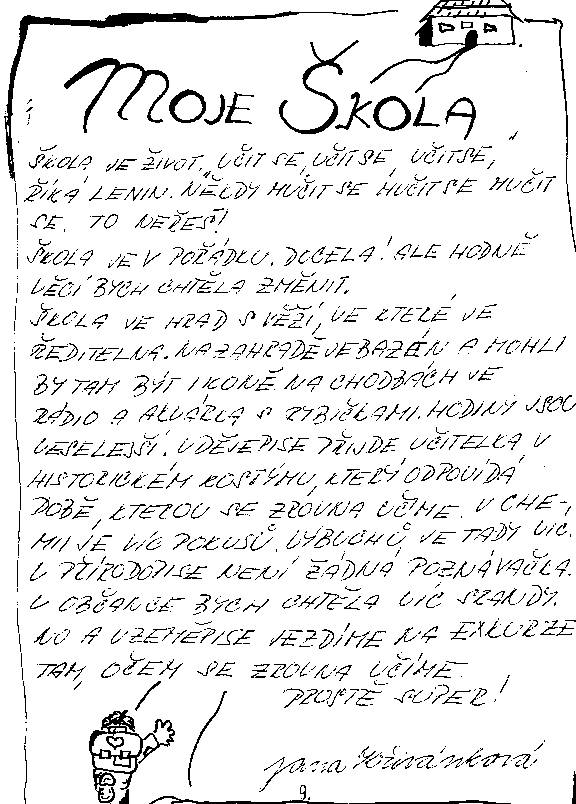 MOJE ŠKOLA
ŠKOLA JE ŽIVOT. „UČIT SE, UČIT SE, UČIT SE,"
ŘÍKÁ LENIN. NĚKDY MUČIT SE MUČIT SE MUČIT
SE. TO NEŘEŠ!
ŠKOLA JE V POŘÁDKU. DOCELA! ALE HODNĚ
VĚCÍ BYCH CHTĚLA ZMĚNIT.
ŠKOLA JE HRAD S VĚŽÍ, VE KTERÉ JE
ŘEDITELNA. NA ZAHRADĚ JE BAZÉN A MOHLI
BY TAM BÝT I KONĚ. NA CHODBÁCH JE
RÁDIO A AKVÁRKA S RYBIČKAMI. HODINY JSOU
VESELEJŠÍ. V DĚJEPISE PŘIJDE UČITELKA V
HISTORICKÉM KOSTÝMU, KTERÝ ODPOVÍDÁ
DOBĚ, KTEROU SE ZROVNA UČÍME. V CHE-
MII JE VÍC POKUSŮ. VÝBUCHŮ JE TADY VÍC.
V PŘÍRODOPISE NENÍ ŽÁDNÁ POZNÁVAČKA.
V OBČANCE BYCH CHTĚLA VÍC SRANDY.
NO A V ZEMĚPISE JEZDÍME NA EXKURZE
TAM, O ČEM SE ZROVNA UČÍME.
PROSTĚ SUPER!
Jana Křivánková
9.